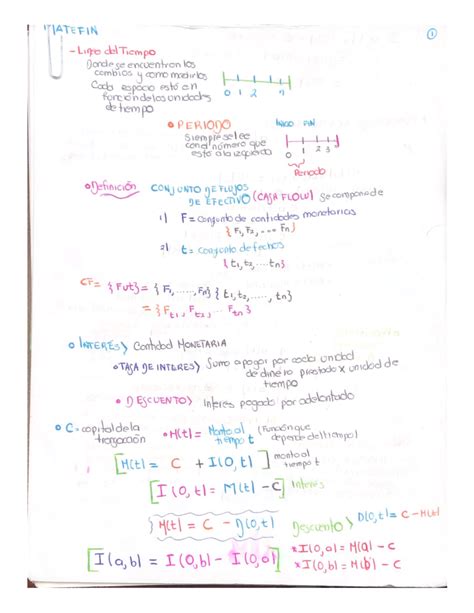 MATEFIN
①
- Linea del Tiempo
Donde se encuentran los
cambios y como medirlos
Cada espacio está en
función de las unidades
de tiempo
0 1 2 n
• PERIODO
Siempre se lee
con el número que
está a la izquierda
INICIO FIN
0 1 2 3
Periodo
• Definición CONJUNTO DE FLUJOS
DE EFECTIVO (CASH FLOW) se compone de
1) F = conjunto de cantidades monetarias
{F₁, F₂, ... Fn}
2) t = conjunto de fechas
{t₁, t₂, ... tn}
CF = {F u t} = {F₁, ....., Fn} {t₁, t₂, ..., tn}
= {Ft₁, Ft₂, ... Ftn}
• INTERÉS> Cantidad MONETARIA
• TASA DE INTERES> Suma a pagar por cada unidad
de dinero prestado x unidad de
tiempo
• DESCUENTO> Interes pagado por adelantado
• C - capital de la
transacción
• M(t) = Monto al
tiempo t
(Función que
depende del tiempo)
[M(t) = C + I(0,t)] monto al
tiempo t
[I(0,t) = M(t) - C] Interés
M(t) = C - D(0,t)
Descuento> D(0,t) = C - M(t)
[I(a,b) = I(0,b) - I(0,a)]
* I(0,a) = M(a) - C
* I(0,b) = M(b) - C